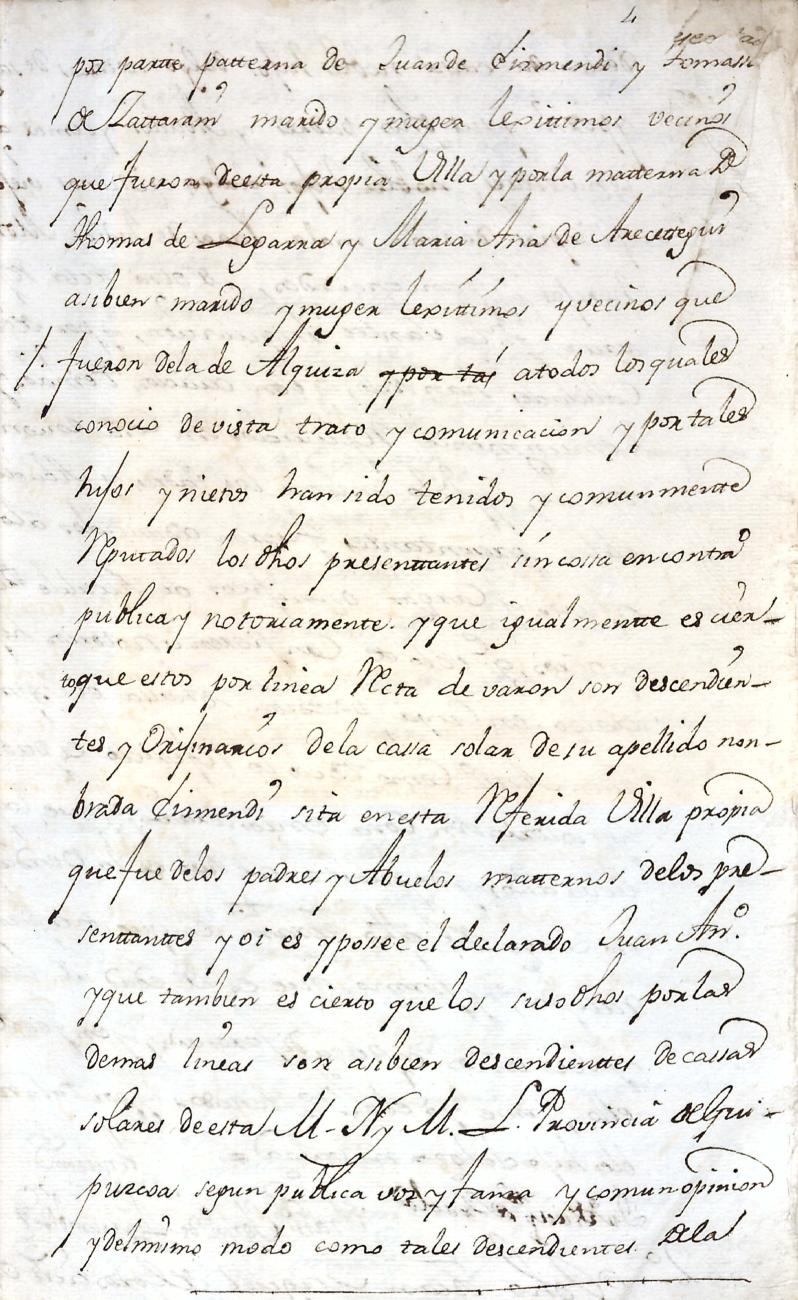 4
por partte patterna de Juan de Lirmendi y Tomassa
de Lattaram marido y muger lexittimos vecinos
que fueron de esta propia Villa y por la matterna de
Thomas de Legarra y Maria Ana de Arecettegui
asi bien marido y muger lexittimos y vecinos que
/. fueron de la de Alquiza y por tal a todos los quales
conocio de vista trato y comunicacion y por tales
hijos y nietos han sido tenidos y comunmentte
Reputados los dhos presenttantes sin cossa en contrº
publica y notoriamente. y que igualmentte es cier-
to, que estos por linea Recta de varon son descendien-
tes y Originarios de la cassa solar de su apellido non-
brada Lirmendi sita en esta Referida Villa propia
que fue de los padres y Abuelos matternos de los pre-
senttanttes y oi es y possee el declarado Juan Anº.
y que tambien es cierto que los susodhos por las
demas lineas son asi bien descendienttes de cassas
solares de esta M. N. y M. L. Provincia de Gui-
puzcoa segun publica voz y fama y comun opinion
y del mismo modo como tales descendientes de la